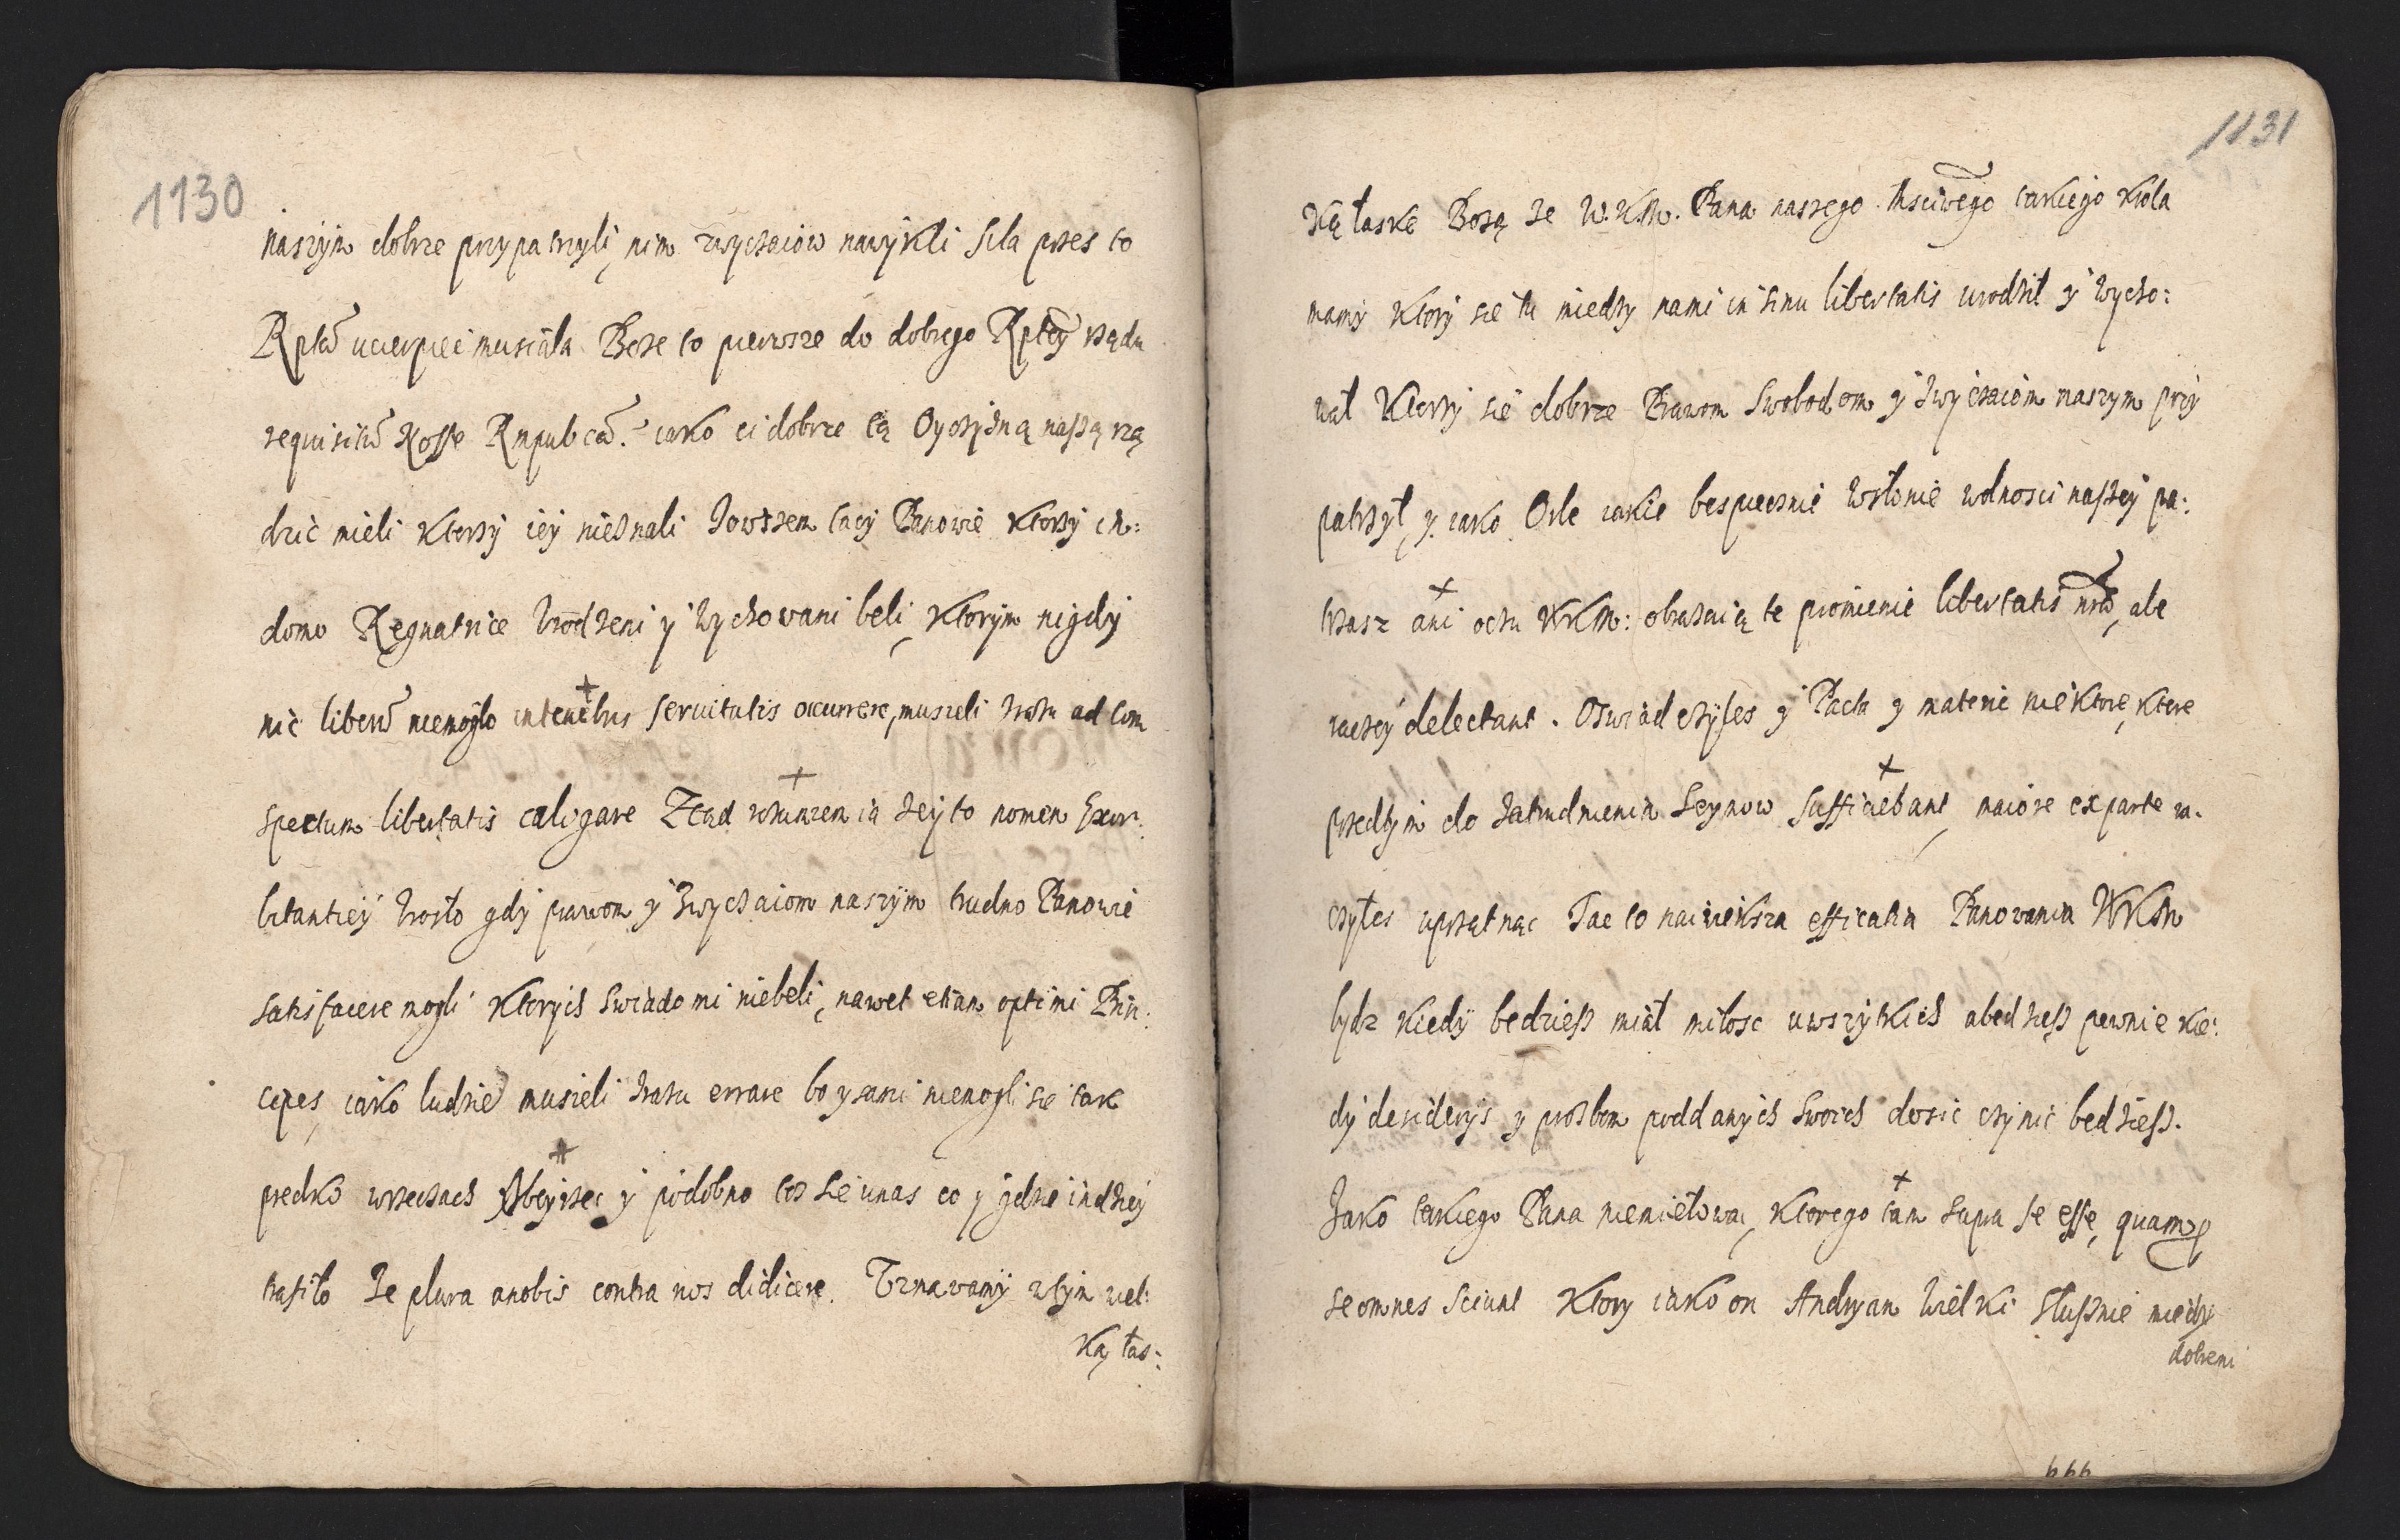 1130
naszym dobrze przypatrzyli, nim zwyczaiow nawykli siła przes to
Rpta ucierpiec musiała. Boze to pierwsze do dobrego Rptey rządu
requisitũ nosse Rempubcã. iako ci dobrze tą Oyczyzną naszą rzą
dzić mieli ktorzy iey nieznali Zowszem tacy Panowie ktorzy in:
domo Regnatrice Urodzeni y wychowani beli, ktorym nigdy
nic liberũ niemogło intenebris servitutis occurrere, musieli zrazu ad con
spectum libertatis caligare Ztąd wzniecenia zey to nomen Exor:
bitantiey wzrosło gdy prawom y zwyczaiom naszym trudno Panowie
satisfacere mogli ktorych swiadomi niebeli, nawet etiam optimi Prin:
cipes, iako ludzie musieli zrazu errare bo y sami niemogli sie tak
predko wrzeczach obeyrzec y podobno tez sie unas co y gdzie indziey
trafiło ze plura anobis contra nos didicere. Uznawamy wtym wel:
Ką łas:
1131
Ką łaskę Bozą ze W.K.M. Pana naszego Msciwego takiego Krola
mamy ktory sie tu miedzy nami in sinu libertatis urodził y wycho:
wał ktorzy sie dobrze Prawom swobodom y zwyczaiom naszym przy
patrzył, y iako Orle iakie bespiecznie wsłonie wolnosci naszey pa:
trzasz ani oczu WKM: obrazaią te promienie libertatis nrae, ale
raczey delectant. Oswiadczyłes y Pacta y materie niektore, ktore
przedtym do zatrudnienia Seymow sufficiebant, maiore ex parte ra:
czyłes uprzątnąc Tac to naiwieksza efficatia Panowania WKM
bydz kiedy bedziesz miał miłosc uwszytkich abedziesz pewnie kie:
dy desiderys y prozbom poddanych swoich dosic czynic bedziesz.
Jako takiego Pana niemiełowac, ktorego tam supra se esse, quam p
se omnes sciunt ktory iako on Andryan wielki słusznie miedzy
dobremi
666